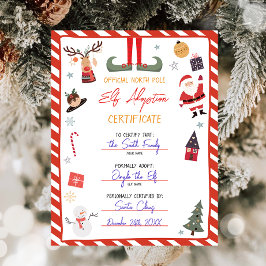 OFFICIAL NORTH POLE
Elf Adoption
CERTIFICATE
TO CERTIFY THAT:
the Smith Family
YOUR NAME
FORMALLY ADOPT:
Jingle the Elf
ELF'S NAME
PERSONALLY CERTIFIED BY:
Santa Claus
December 24th, 20XX